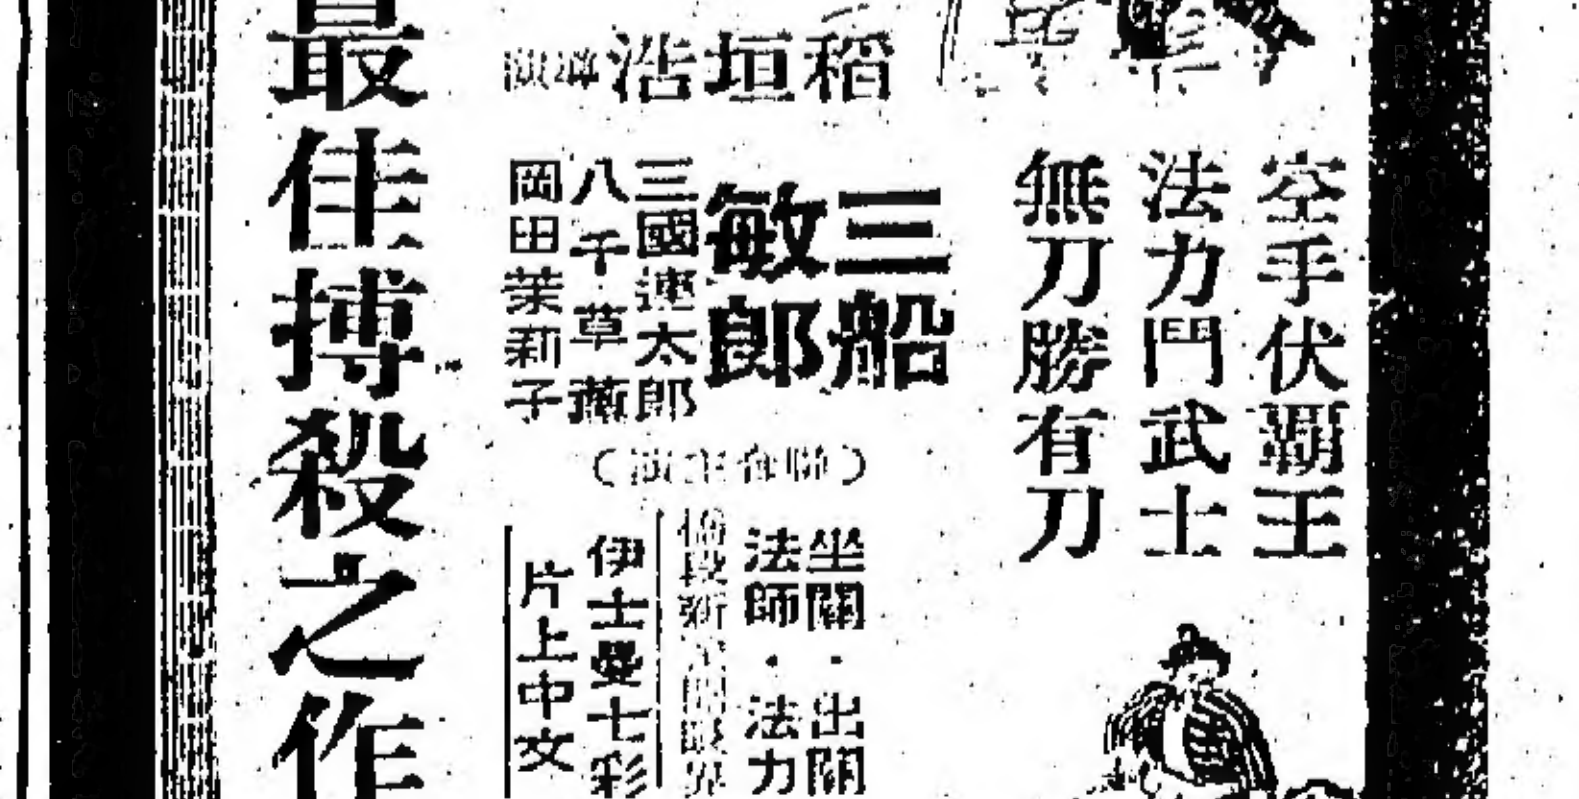 空手伏霸王
法力鬥武士
無刀勝有刀
稻垣浩導演
三船
敏郎
三國連太郎
八千草薰
岡田茉莉子
(聯合主演)
坐關・出關
法師・法力
伊士曼七彩
片上中文
最佳搏殺之作